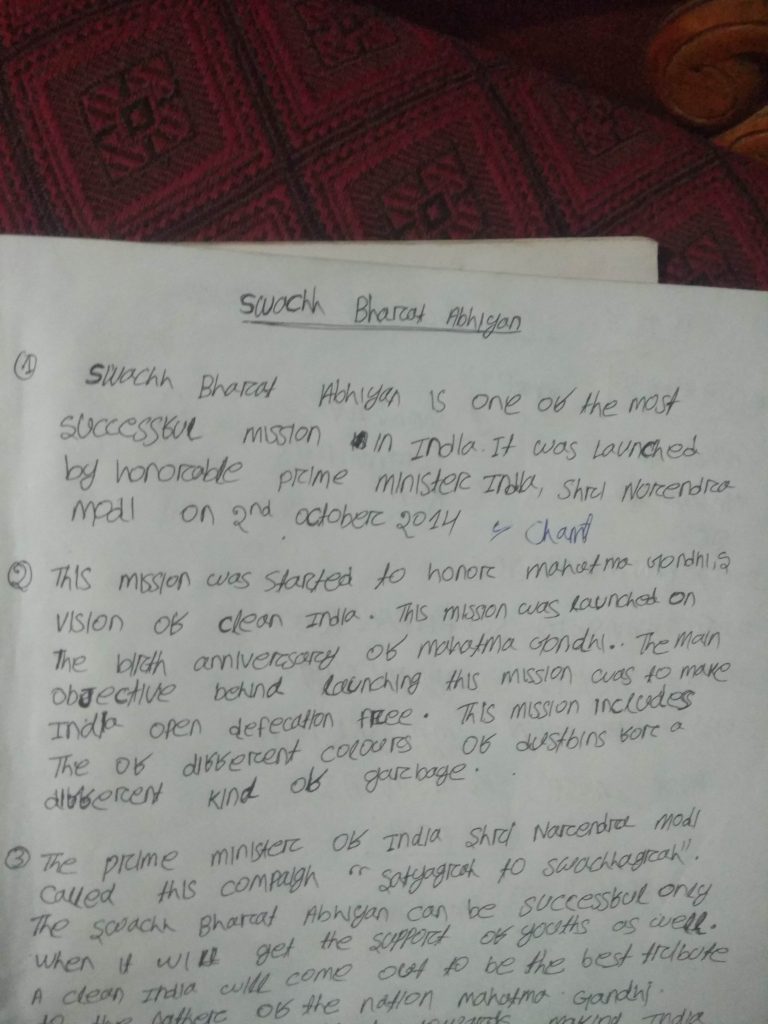 Swachh Bharat Abhiyan
① Swachh Bharat Abhiyan is one of the most
successful mission in India. It was launched
by honorable prime minister India, Shri Narendra
modi on 2nd october 2014
② This mission was started to honor mahatma Gandhi,s
vision of clean India. This mission was launched on
The birth anniversary of mahatma Gandhi.. The main
objective behind launching this mission was to make
India open defecation free. This mission includes
The of different colours of dustbins for a
different kind of garbage.
③ The prime minister of India Shri Narendra modi
called this campaign "satyagrah to swachhagrah".
The swachh Bharat Abhiyan can be successful only
when it will get the support of youths as well.
A clean India will come out to be the best tribute
to the father of the nation mahatma Gandhi.
towards making India